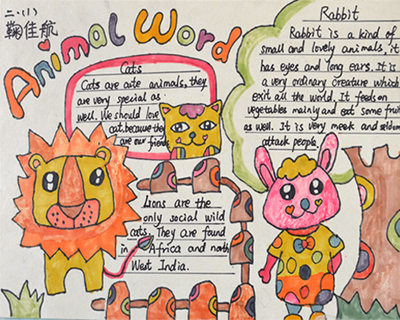 二.(1)
鞠佳航
Animal Word
Cats
Cats are cute animals, they
are very special as
well. We should love
cat, because they
are our friends
Lions are the
only social wild
cats. They are found
in Africa and north
West India.
Rabbit
Rabbit is a kind of
small and lovely animals, it
has eyes and long ears. It is
a very ordinary creature which
exit all the world. It feeds on
vegetables mainly and eat some fruit
as well. It is very meek and seldom
attack people.